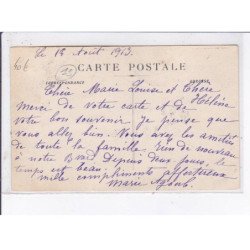 Le 12 Août 1913.
CARTE POSTALE
CORRESPONDANCE ADRESSE
Chère Marie Louise et Chère
Hélène
Merci de votre carte et de
votre bon souvenir. Je pense que
vous allez bien. Nous avez les amitiés
de toute la famille. Rien de nouveau
à notre Depuis deux jours, le
temps est beau.
mille compliments affectueux
Marie